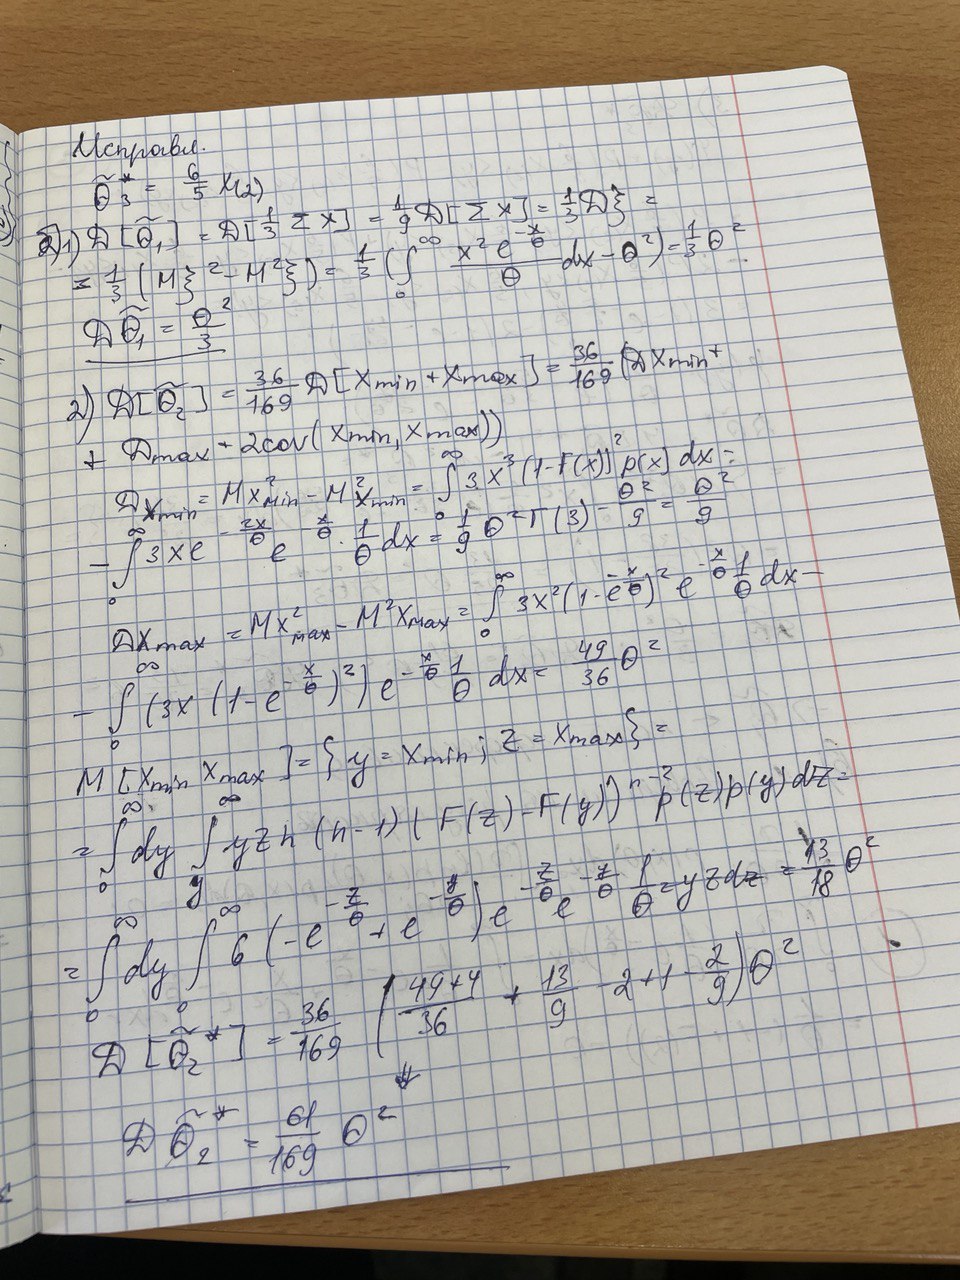 Исправл.
θ̃₃* = 6/5 X₍₂₎
2) 1) D[θ̃₁] = D[1/3 Σ X] = 1/9 D[Σ X] = 1/3 Dξ =
= 1/3 (Mξ² - M²ξ) = 1/3 (∫₀^∞ x² e^(-x/θ)/θ dx - θ²) = 1/3 θ²
Dθ̃₁ = θ²/3
2) D[θ̃₂] = 36/169 D[Xmin + Xmax] = 36/169 (DXmin +
+ Dmax + 2cov(Xmin, Xmax))
DXmin = MX²min - M²Xmin = ∫₀^∞ 3x³ (1-F(x))² p(x) dx -
- ∫₀^∞ 3x e^(-2x/θ) e^(-x/θ) · 1/θ dx = 1/9 θ² Γ(3) - θ²/9 = θ²/9
DXmax = MX²max - M²Xmax = ∫₀^∞ 3x² (1-e^(-x/θ))² e^(-x/θ) 1/θ dx -
- ∫₀^∞ (3x (1-e^(-x/θ))²) e^(-x/θ) 1/θ dx = 49/36 θ²
M[Xmin Xmax] = { y = Xmin ; z = Xmax } =
= ∫₀^∞ dy ∫_y^∞ yz n (n-1) (F(z) - F(y))^(n-2) p(z) p(y) dz =
= ∫₀^∞ dy ∫₀^∞ 6 (-e^(-z/θ) + e^(-y/θ)) e^(-z/θ) e^(-y/θ) 1/θ² yz dz = 13/18 θ²
D[θ̃₂*] = 36/169 (49+4/36 + 13/9 - 2+1 - 2/9) θ²
Dθ̃₂* = 61/169 θ²